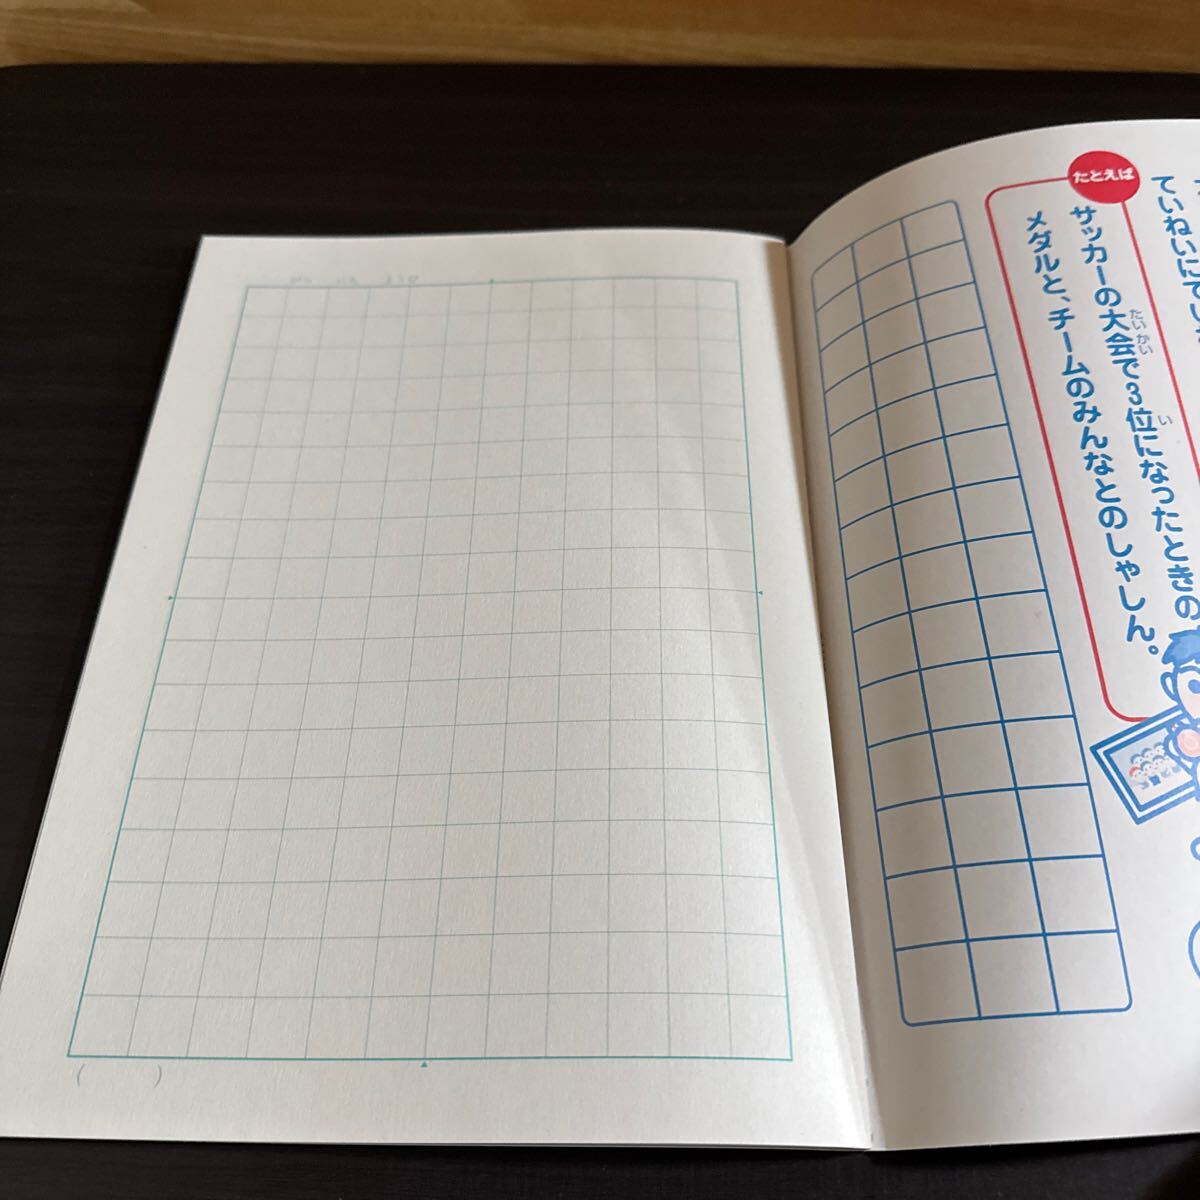 ていねいに
たとえば
サッカーの大会で3位になったときの
たいかい
い
メダルと、チームのみんなとのしゃしん。
(　　)